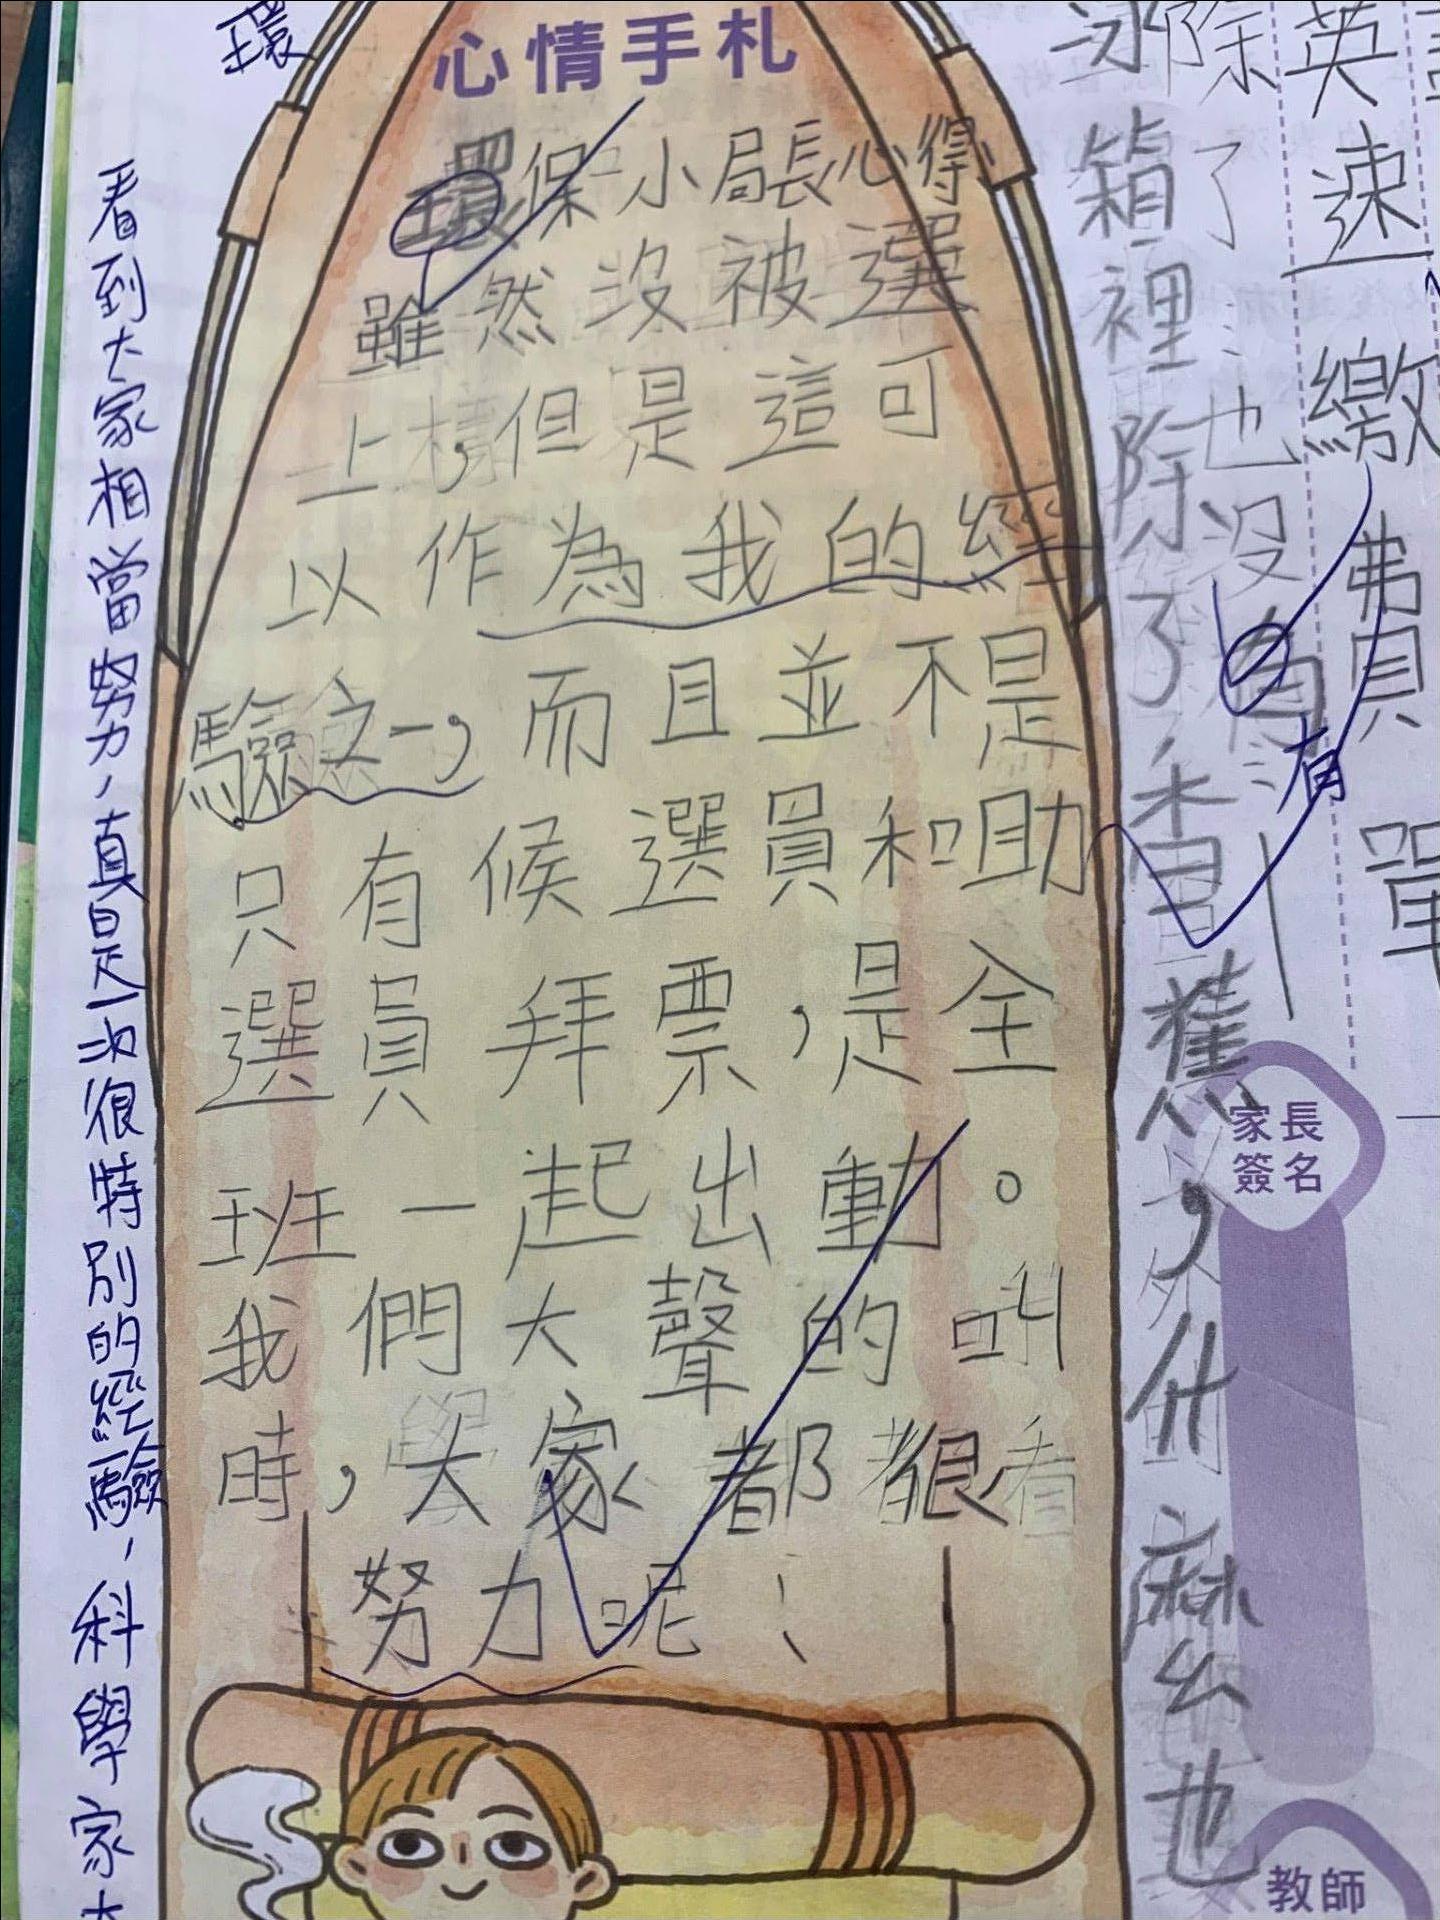 心情手札
環保小局長心得
雖然沒被選
上,但是這可
以作為我的經
驗之一,而且並不是
只有候選員和助
選員拜票,是全
班一起出動。
我們大聲的叫
時,大家都很
努力呢!
環
看到大家相當努力,真是一次很特別的經驗,科學家
冰箱裡除了
,什麻么也
除了
也沒
有
英速繳費單
家長
簽名
教師